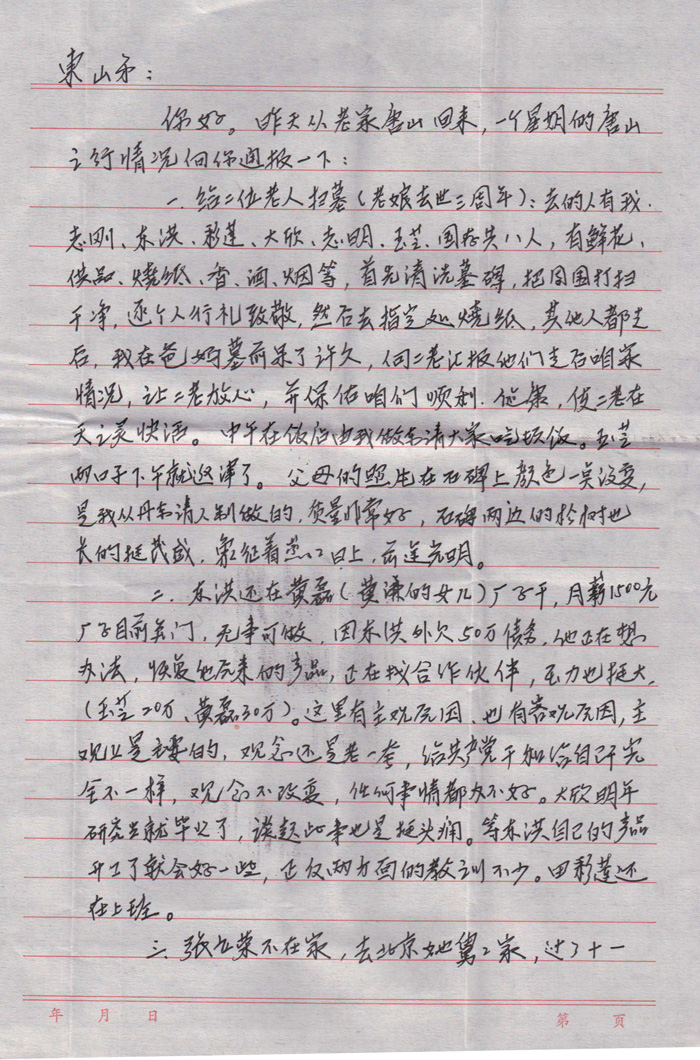 东山弟：
你好。昨天从老家唐山回来，一个星期的唐山
之行情况向你通报一下：
一. 给二位老人扫墓（老娘去世三周年）：去的人有我.
志刚、东洪、彩莲、大欣、志明、玉芝、国存共八人，有鲜花、
供品、烧纸、香、酒、烟等，首先清洗墓碑，把周围打扫
干净，逐个人行礼致敬，然后去指定处烧纸，其他人都走
后，我在爸妈墓前呆了许久，向二老汇报他们走后咱家
情况，让二老放心，并保佑咱们顺利. 健康，使二老在
天之灵快活。中午在饭店由我做东请大家吃顿饭。玉芝
两口子下午就返津了。父母的照片在石碑上颜色一点没变，
是我从丹东请人制做的，质量非常好，石碑两边的松树也
长的挺茂盛，象征着蒸蒸日上，前途光明。
二. 东洪还在黄磊（黄谦的女儿）厂子干，月薪1500元
厂子目前关门，无事可做，因东洪外欠50万债务，他正在想
办法，恢复他原来的产品，正在找合作伙伴，压力也挺大，
（玉芝20万、黄磊30万）。这里有主观原因、也有客观原因，主
观上是主要的，观念还是老一套，给共产党干和给自己干完
全不一样，观念不改变，任何事情都办不好。大欣明年
研究生就毕业了，谈起此事也是挺头痛。等东洪自己的产品
开工了就会好一些，正反两方面的教训不少。田彩莲还
在上班。
三. 张立荣不在家，去北京她舅舅家，过了十一
年 月 日 第 页